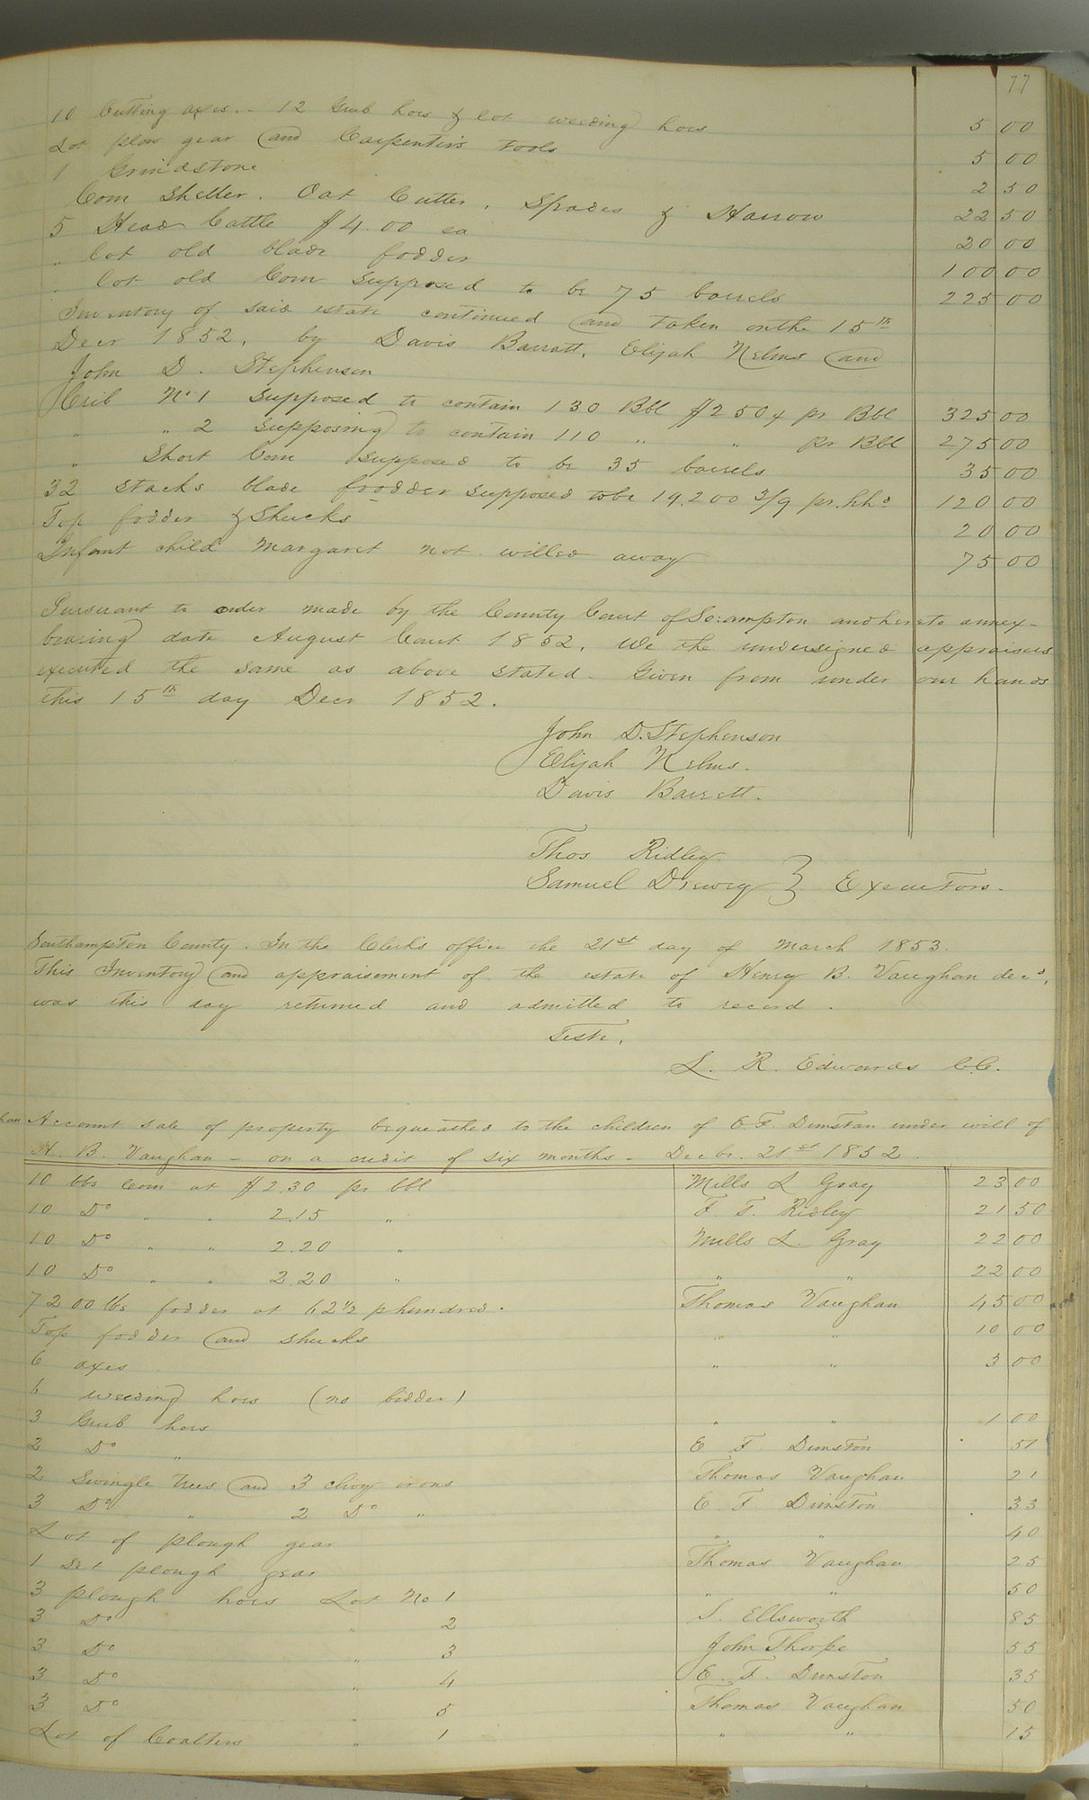 77
10 Cutting axes. - 12 Grub hoes & lot weeding hoes 5 00
Lot plow gear and Carpenters tools 5 00
1 Grindstone 2 50
Corn Sheller. Oat Cutter, Spades & Harrow 22 50
5 Head Cattle $4.00 ea 20 00
" lot old blade fodder 100 00
" lot old Corn supposed to be 75 barrels 225 00
Inventory of said estate continued and taken on the 15th
Decr 1852, by Davis Barratt, Elijah Nelms and
John D. Stephenson
Crib No 1 supposed to contain 130 Bbl $2 50 pr Bbl 325 00
" " 2 supposing to contain 110 " " pr Bbl 275 00
" Short Corn supposed to be 35 barrels 35 00
32 stacks blade frodder supposed to be 19.200 3/9 pr. hhd 120 00
Top fodder & Shucks 20 00
Infant child Margaret not willed away 75 00
Pursuant to order made by the County Court of So:ampton and hereto annex-
bearing date August Court 1852, We the undersigned appraisers
executed the same as above stated. Given from under our hands
this 15th day Decr 1852.
John D. Stephenson
Elijah Nelms.
Davis Barrett.
Thos Ridley
Samuel Drewry } Executors.
Southampton County. In the Clerks office the 21st day of March 1853.
This Inventory and appraisement of the estate of Henry B. Vaughan decd,
was this day returned and admitted to record.
Teste,
L. R. Edwards C.C.
Account sale of property bequeathed to the children of E F. Dunstan under will of
H. B. Vaughan - on a credit of six months - Decbr. 21st 1852.
10 bbs Corn at $2.30 pr bbl Mills L Gray 23 00
10 Do " " 2.15 " F. T. Ridley 21 50
10 Do " " 2.20 " Mills L. Gray 22 00
10 Do " " 2.20 " " " 22 00
7200 lbs fodder at 62 1/2 p hundred. Thomas Vaughan 45 00
Top fodder and shucks " " 10 00
6 axes " " 3 00
6 weeding hoes (no bidder)
3 Grub hoes " " 1 00
2 Do " E F. Dunston 51
2 Swingle trees and 3 irons Thomas Vaughan 21
3 Do " 2 Do " E F Dunston 33
Lot of plough gear " " 40
1 Set plough gear Thomas Vaughan 25
3 plough hoes Lot No 1 " " 50
3 Do " 2 S. Ellsworth 85
3 Do " 3 John Thorpe 55
3 Do " 4 E. F. Dunston 35
3 Do " 5 Thomas Vaughan 50
Lot of Coalters " 1 " " 15